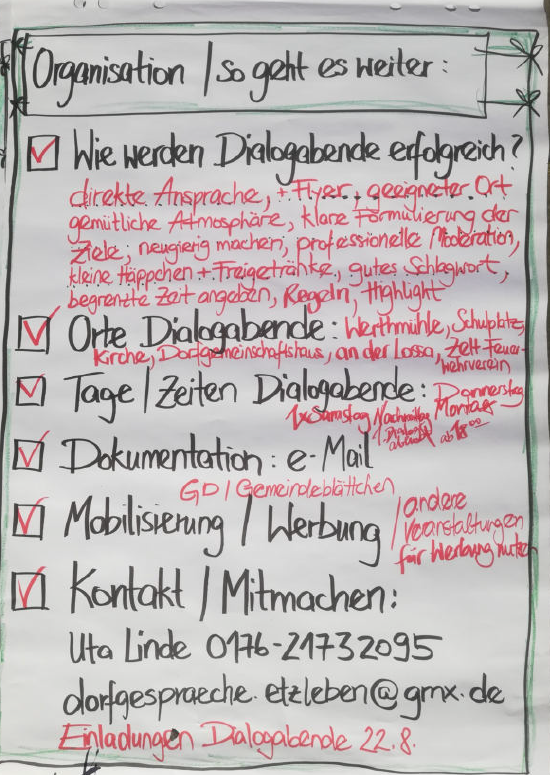 Organisation / so geht es weiter:
Wie werden Dialogabende erfolgreich?
direkte Ansprache, + Flyer, geeigneter Ort
gemütliche Atmosphäre, klare Formulierung der
Ziele, neugierig machen, professionelle Moderation,
kleine Häppchen + Freigetränke, gutes Schlagwort,
begrenzte Zeit angeben, Regeln, Highlight
Orte Dialogabende: Werthmühle, Schulplatz,
Kirche, Dorfgemeinschaftshaus, an der Lossa, Zelt Feuer-
wehrverein
Tage / Zeiten Dialogabende: Donnerstag
1x Samstag Nachmittag Montag
1. Dialog- ab 18 00
abend
Dokumentation: e-Mail
GD / Gemeindeblättchen
Mobilisierung / Werbung / andere
Veranstaltungen
für Werbung nutzen
Kontakt / Mitmachen:
Uta Linde 0176-21732095
dorfgespraeche.etzleben@gmx.de
Einladungen Dialogabende 22.8.